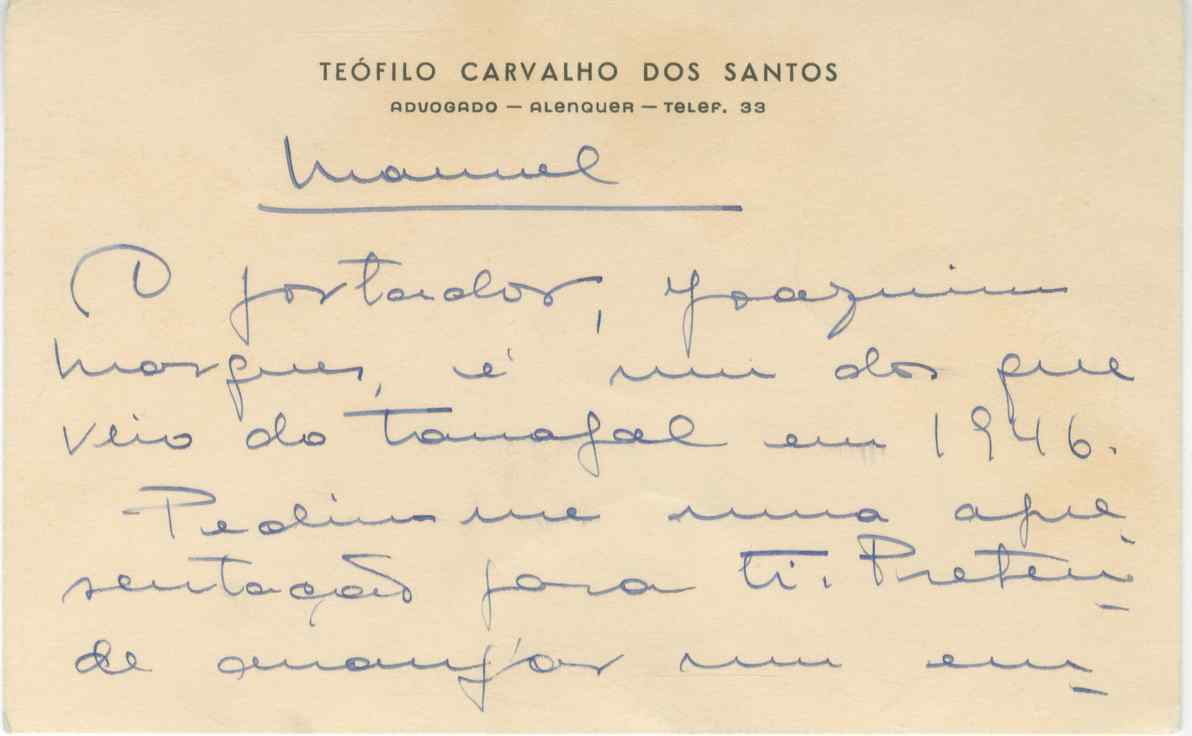 TEÓFILO CARVALHO DOS SANTOS
ADVOGADO — ALENQUER — TELEF. 33
Manuel
O portador, Joaquim
Marques, é um dos que
veio do Tarrafal em 1946.
Pediu-me uma apre
sentação para ti. Preten-
de arranjar um em-